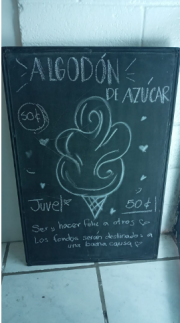 ALGODÓN
DE AZÚCAR
50¢
50¢
hacer feliz a otros
Los fondos serán destinados a
una buena causa